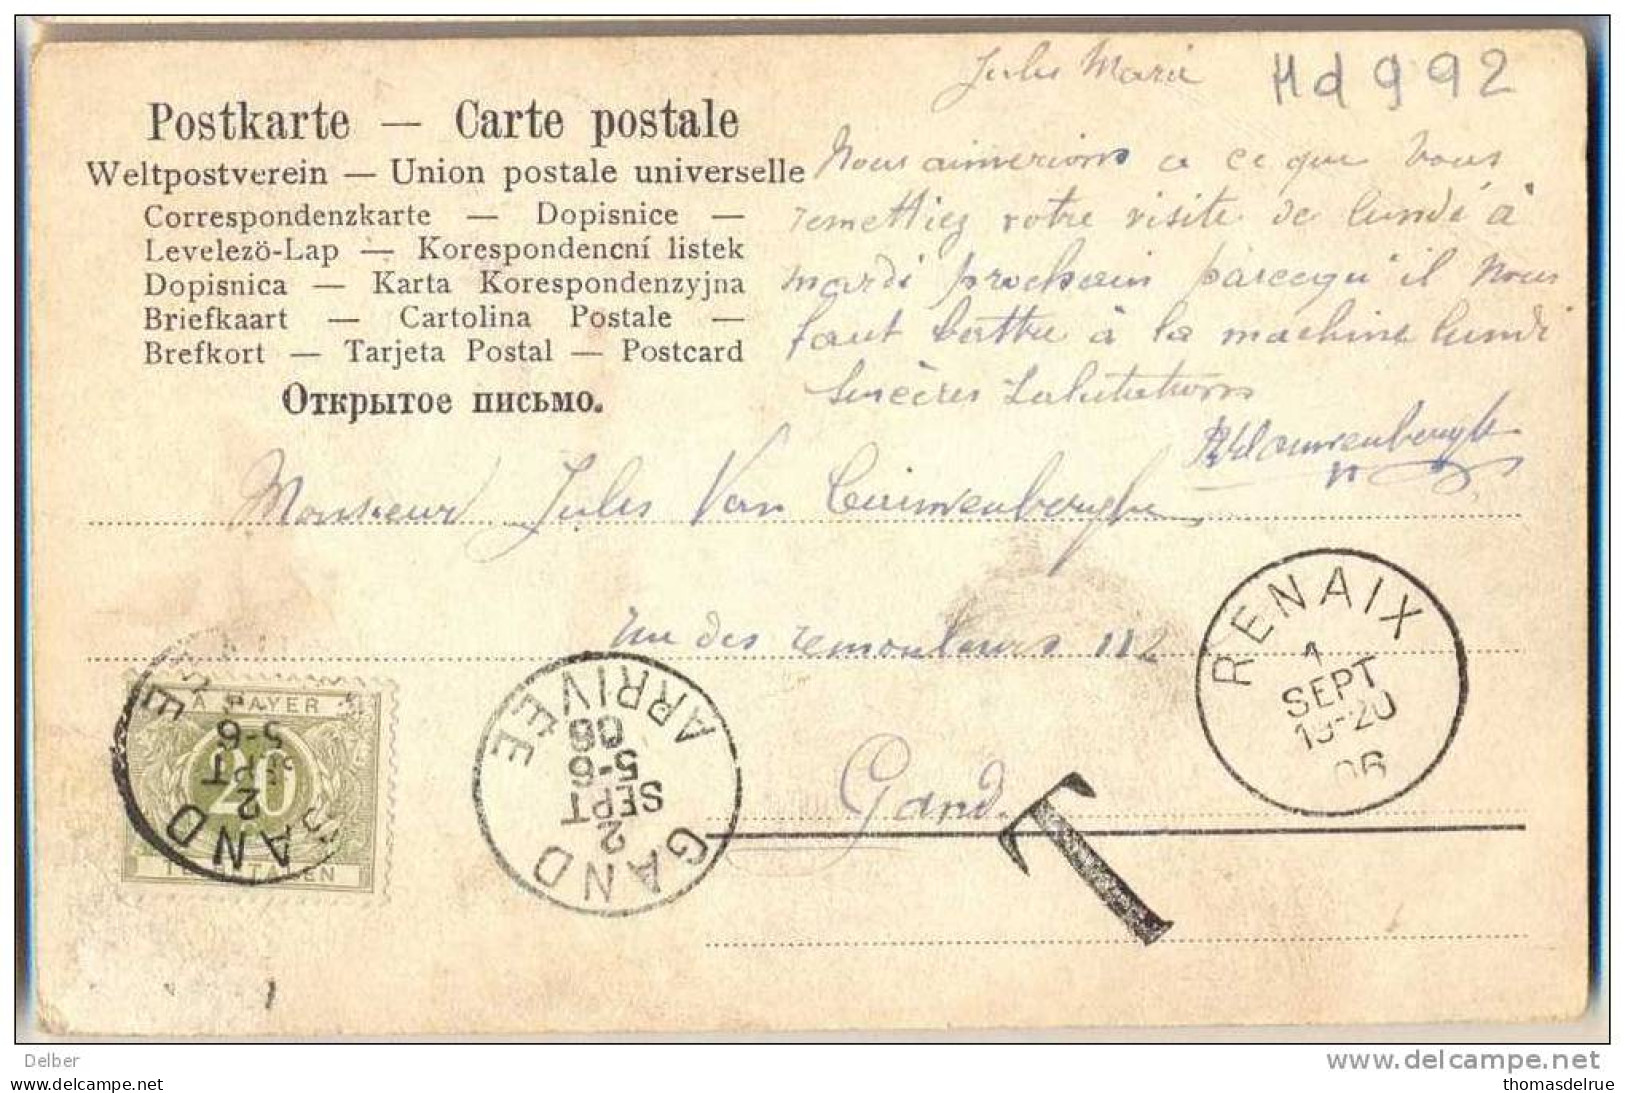 Jules Maria
Hd992
Postkarte — Carte postale
Weltpostverein — Union postale universelle
Correspondenzkarte — Dopisnice —
Levelezö-Lap — Korespondencní listek
Dopisnica — Karta Korespondenzyjna
Briefkaart — Cartolina Postale —
Brefkort — Tarjeta Postal — Postcard
Открытое письмо.
Nous aimerions a ce que Vous
remettiez votre visite de lundé à
mardi prochain parcequ'il Nous
faut battre à la machine lundi
Sincères Salutations
Monsieur Jules Van Cauwenberghe
rue des remouleurs 112
Gand.
RENAIX
1
SEPT
06
T
GAND ARRIVÉE
2
SEPT
5-6
06
A PAYER
20
TE BETALEN
GAND
2
SEPT
5-6
Delber
www.delcampe.net
©thomasdelrue.com
thomasdelrue